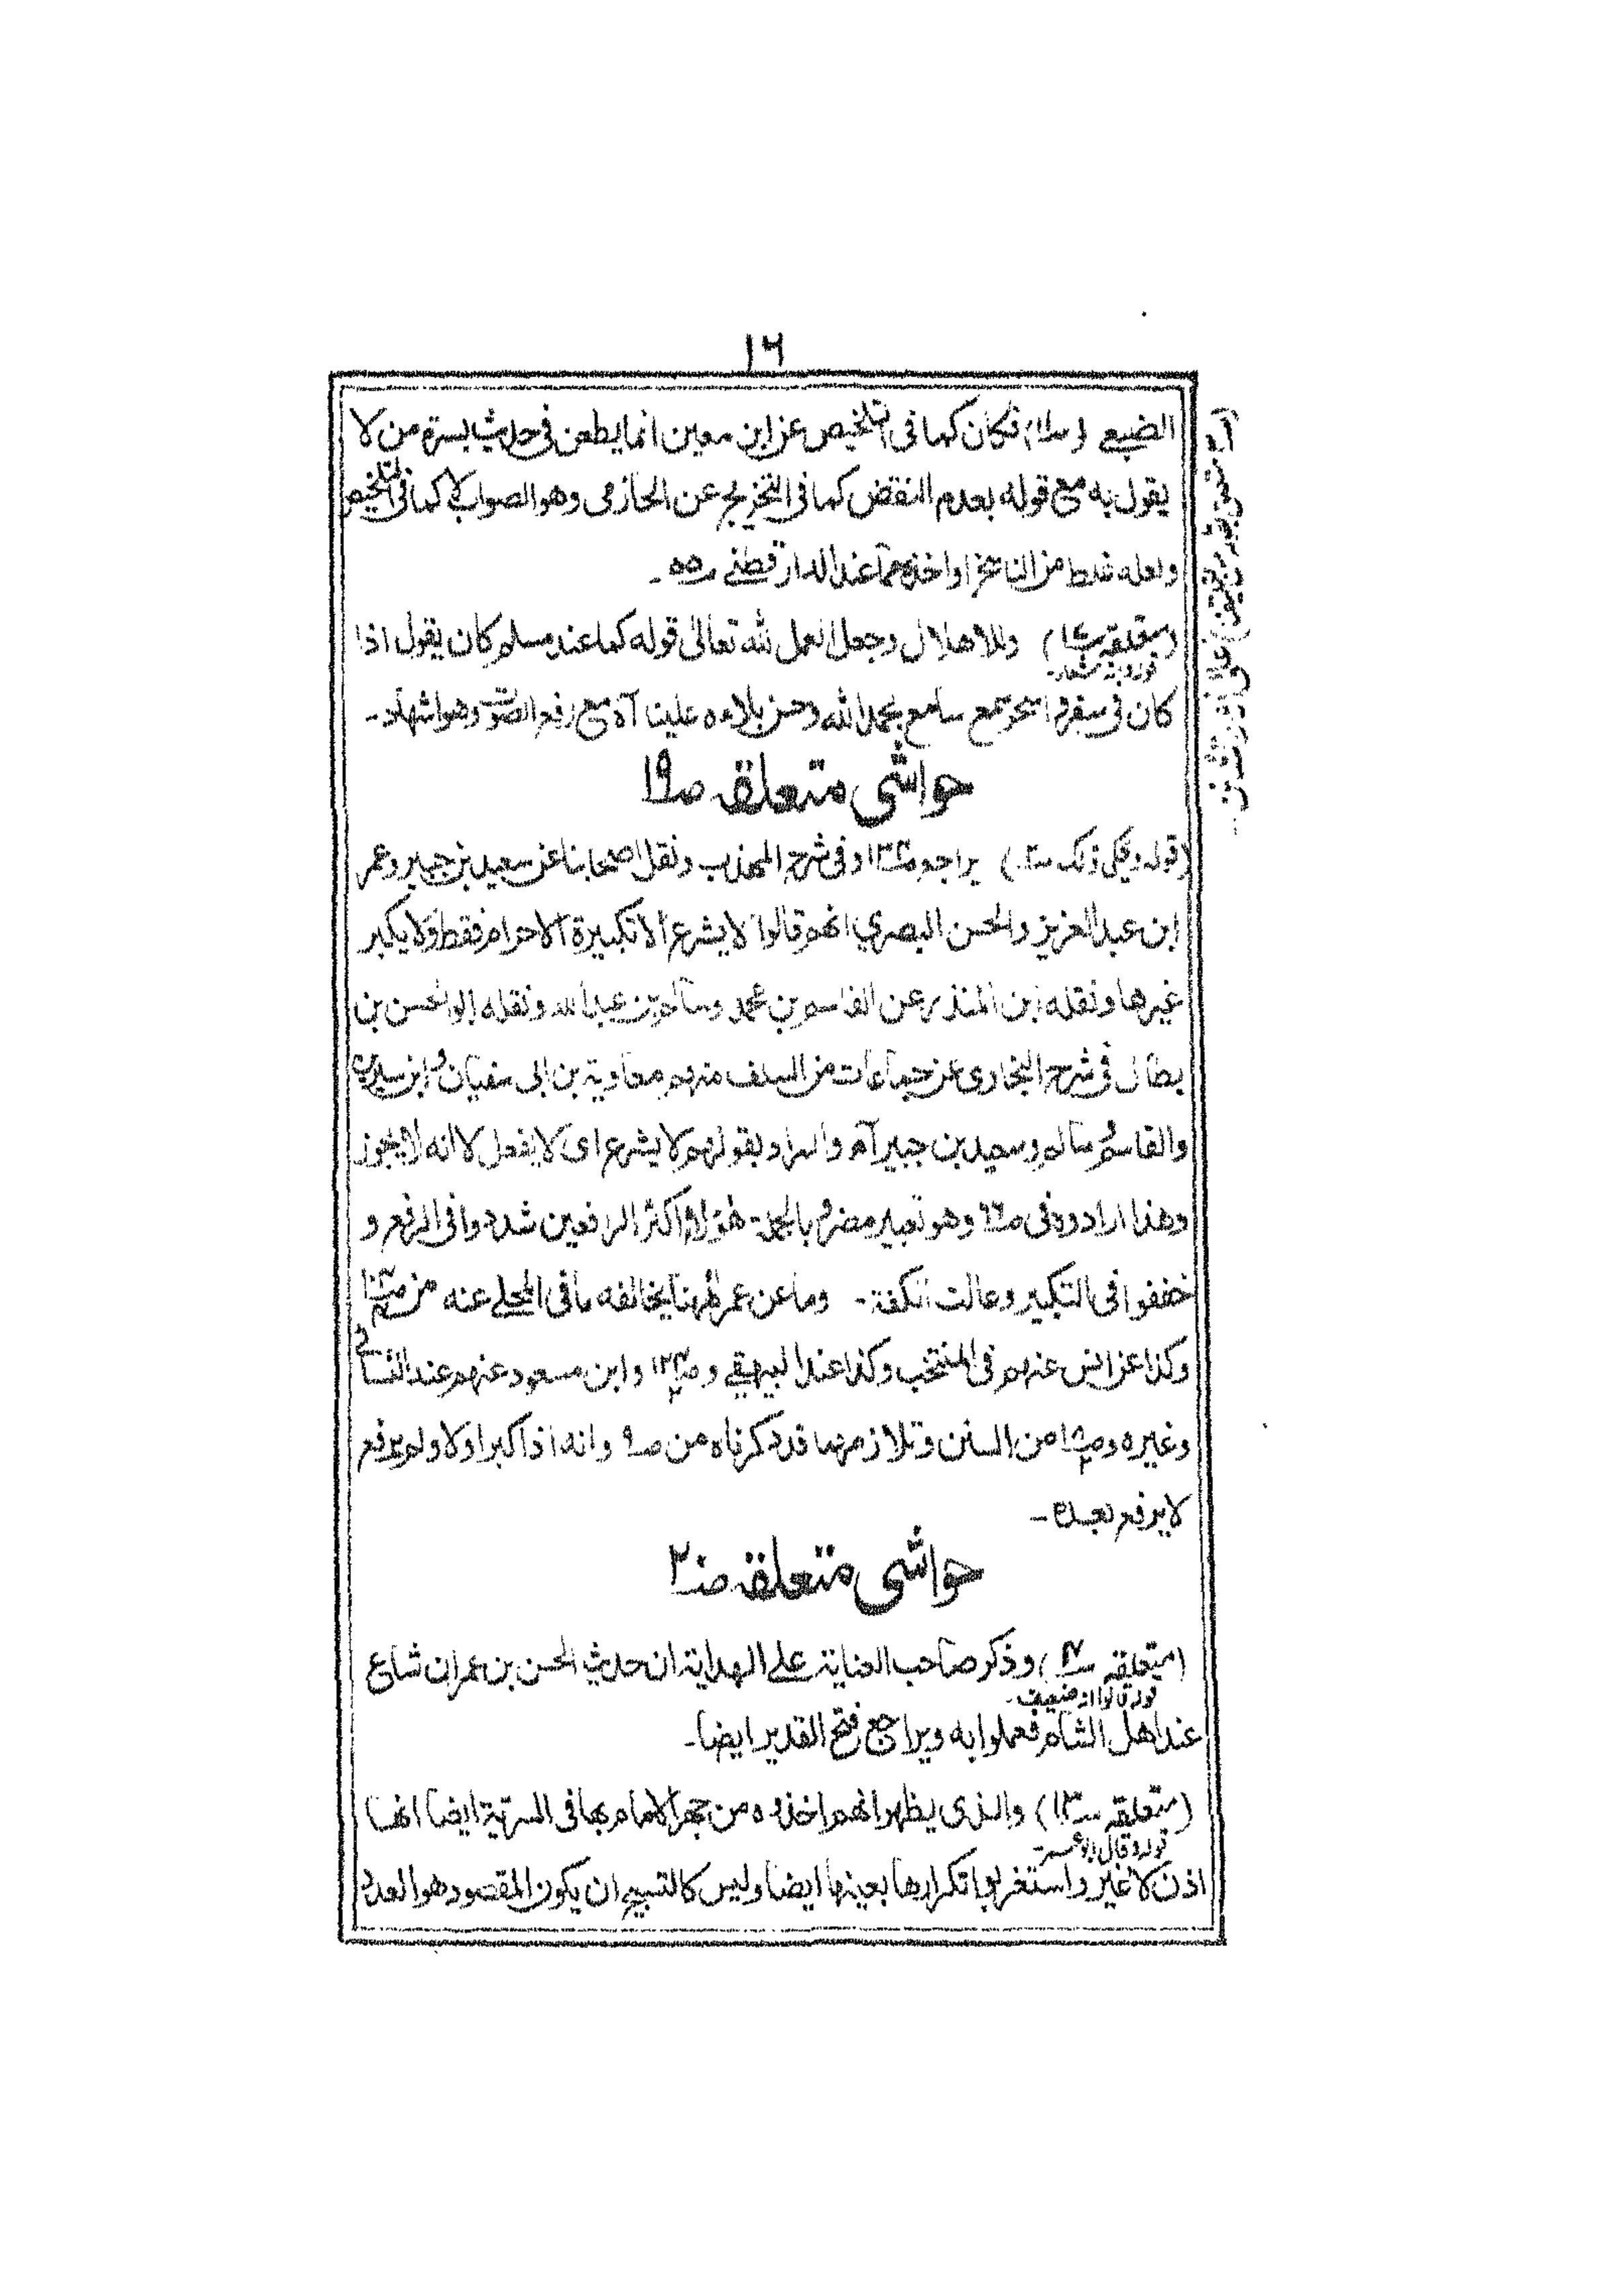 ١٦
الضبعی فكان كما فی التلخيص عن ابن معين انما يطعن فی حديث بسرة من لا
يقول به مع قوله بعدم النقض كما فی التخريج عن الحازمی وهو الصواب كما فی التلخيص
ولعله غلط من الناسخ او اخذه مما عند الدار قطنی ص٥٥ -
(متعلقه) وللاهلال وجعل العمل لله تعالیٰ قوله كما عند مسلم كان يقول اذا
كان فی سفر و اسحر سمع سامع بحمد الله وحسن بلاءه علينا آه مع رفع الصوت وهو اشهاد -
حواشی متعلقه ص١٩
(قوله ويحكی ذلك) يراجع وفی شرح المهذب ونقل اصحابنا عن سعيد بن جبير وعمر
ابن عبد العزيز والحسن البصري انهم قالوا لا يشرع الا تكبيرة الاحرام فقط ولا يكبر
غيرها ونقله ابن المنذر عن القاسم بن محمد وسالم بن عبد الله ونقله ابو الحسن بن
بطال فی شرح البخاری عن جماعات من السلف منهم معاوية بن ابی سفيان و ابن سيرين
والقاسم و سالم وسعيد بن جبير آه والمراد بقولهم لا يشرع ای لا يفعل لا انه لا يجوز
وهذا ارادوه فی وهو تعبير مضر و بالجملة هؤلاء اكثر الرافعين شددوا فی الرفع و
خففوا فی التكبير وعالت الكفة - وما عن عمر ههنا يخالفه ما فی المحلے عنه من
وكذا عن انس عنهم فی المنتخب وكذا عند البيهقی و وابن مسعود عنهم عند النسائی
وغيره و من السنن وتلازمهما قد ذكرناه من ص٩ وانه اذا كبر اولا ولم يرفع
لا يرفع بعده -
حواشی متعلقه ص٢٠
(متعلقه) وذكر صاحب العناية علے الهداية ان حديث الحسن بن عمران شاع
قوله قالوا انه ضعيف -
عند اهل الشام فعملوا به ويراجع فتح القدير ايضا -
(متعلقه) والذی يظهر انهم اخذوه من جهر الامام بها فی السرية ايضا انها
قوله وقال ابو عمر
اذن لا غير واستغربوا تكرارها بعينها ايضا وليس كالتسبيح ان يكون المقصود هو العدد